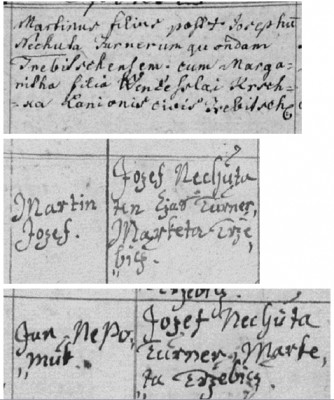 Martinus filius post Josephū
Nechuta Turnerum quondam
Trebitschensem cum Marga-
ritha filia Wenzeslai Krsch-
ka civis Trebitsch
Martin
Jozef.
Jozef Nechuta
ten Turner,
Marketa Trze
bicz.
Trzebicz.
Jan Nepo,
muk.
Jozef Nechuta
Turner, Marke,
ta Trzebicz.